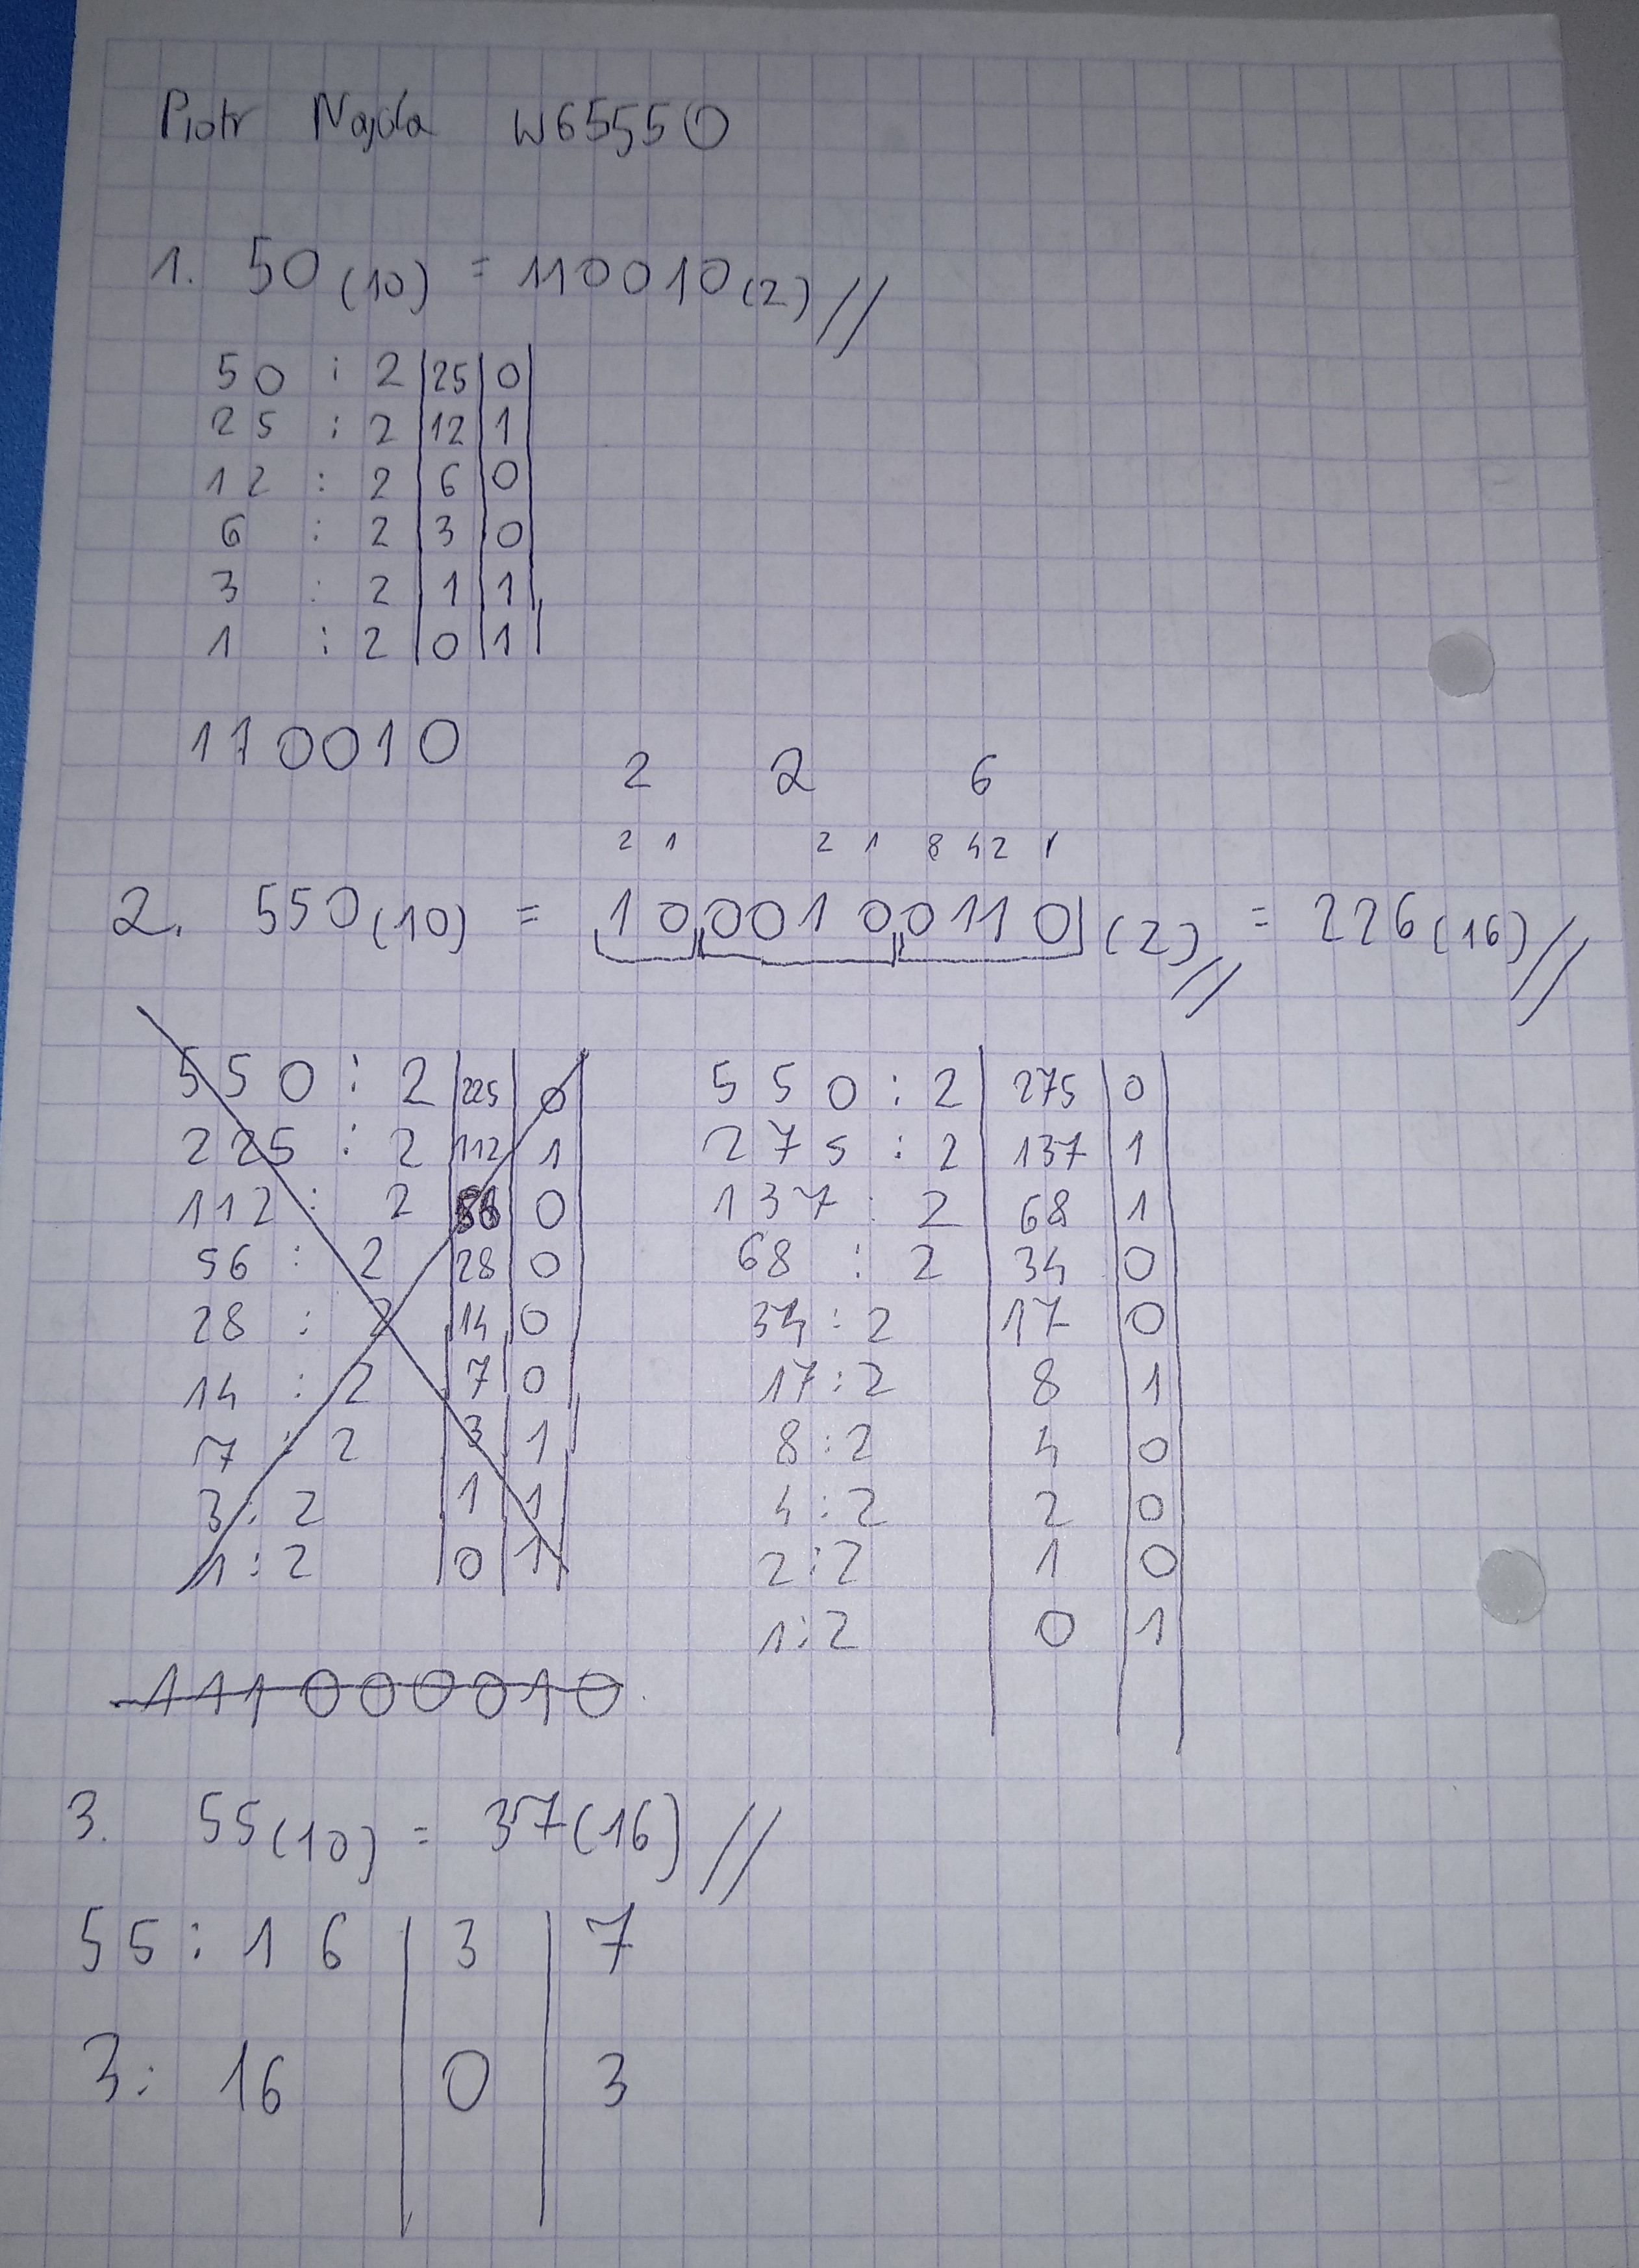 Piotr Najda W65550
1. 50(10) = 110010(2)//
50 : 2 | 25 | 0 |
25 : 2 | 12 | 1 |
12 : 2 | 6 | 0 |
6 : 2 | 3 | 0 |
3 : 2 | 1 | 1 |
1 : 2 | 0 | 1 |
110010
2 2 6
2 1 2 1 8 4 2 1
2. 550(10) = 1000100110(2)// = 226(16)//
550 : 2 | 225 | 0 |
225 : 2 | 112 | 1 |
112 : 2 | 56 | 0 |
56 : 2 | 28 | 0 |
28 : 2 | 14 | 0 |
14 : 2 | 7 | 0 |
7 : 2 | 3 | 1 |
3 : 2 | 1 | 1 |
1 : 2 | 0 | 1 |
111000010
550 : 2 | 275 | 0 |
275 : 2 | 137 | 1 |
137 : 2 | 68 | 1 |
68 : 2 | 34 | 0 |
34 : 2 | 17 | 0 |
17 : 2 | 8 | 1 |
8 : 2 | 4 | 0 |
4 : 2 | 2 | 0 |
2 : 2 | 1 | 0 |
1 : 2 | 0 | 1 |
3. 55(10) = 37(16)//
55 : 16 | 3 | 7
3 : 16 | 0 | 3